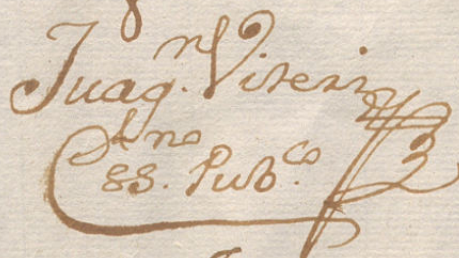 Juaqⁿ. Viteri
Essⁿᵒ. Pubᶜᵒ.